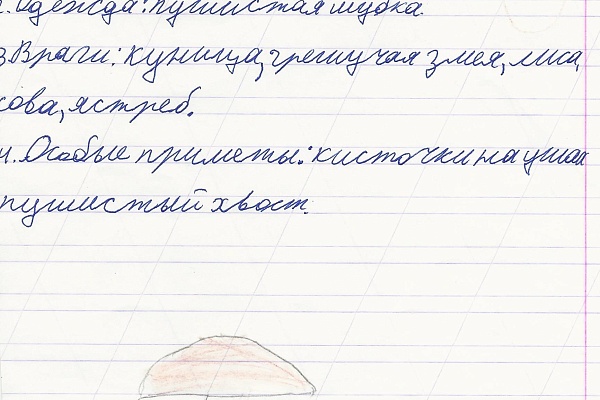 2. Одежда: пушистая шубка.
3. Враги: куница, гремучая змея, лиса,
сова, ястреб.
4. Особые приметы: кисточки на ушах
пушистый хвост.